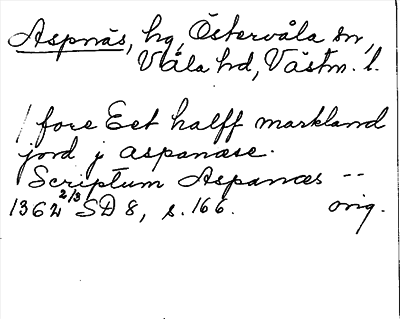 Aspnäs, hg, Östervåla sn,
Våla hd, Västm. l.
/ fore Eet halff markland
jord j aspanæse.
Scriptum Aspanæs --
1362 2/3 SD 8, s. 166. orig.